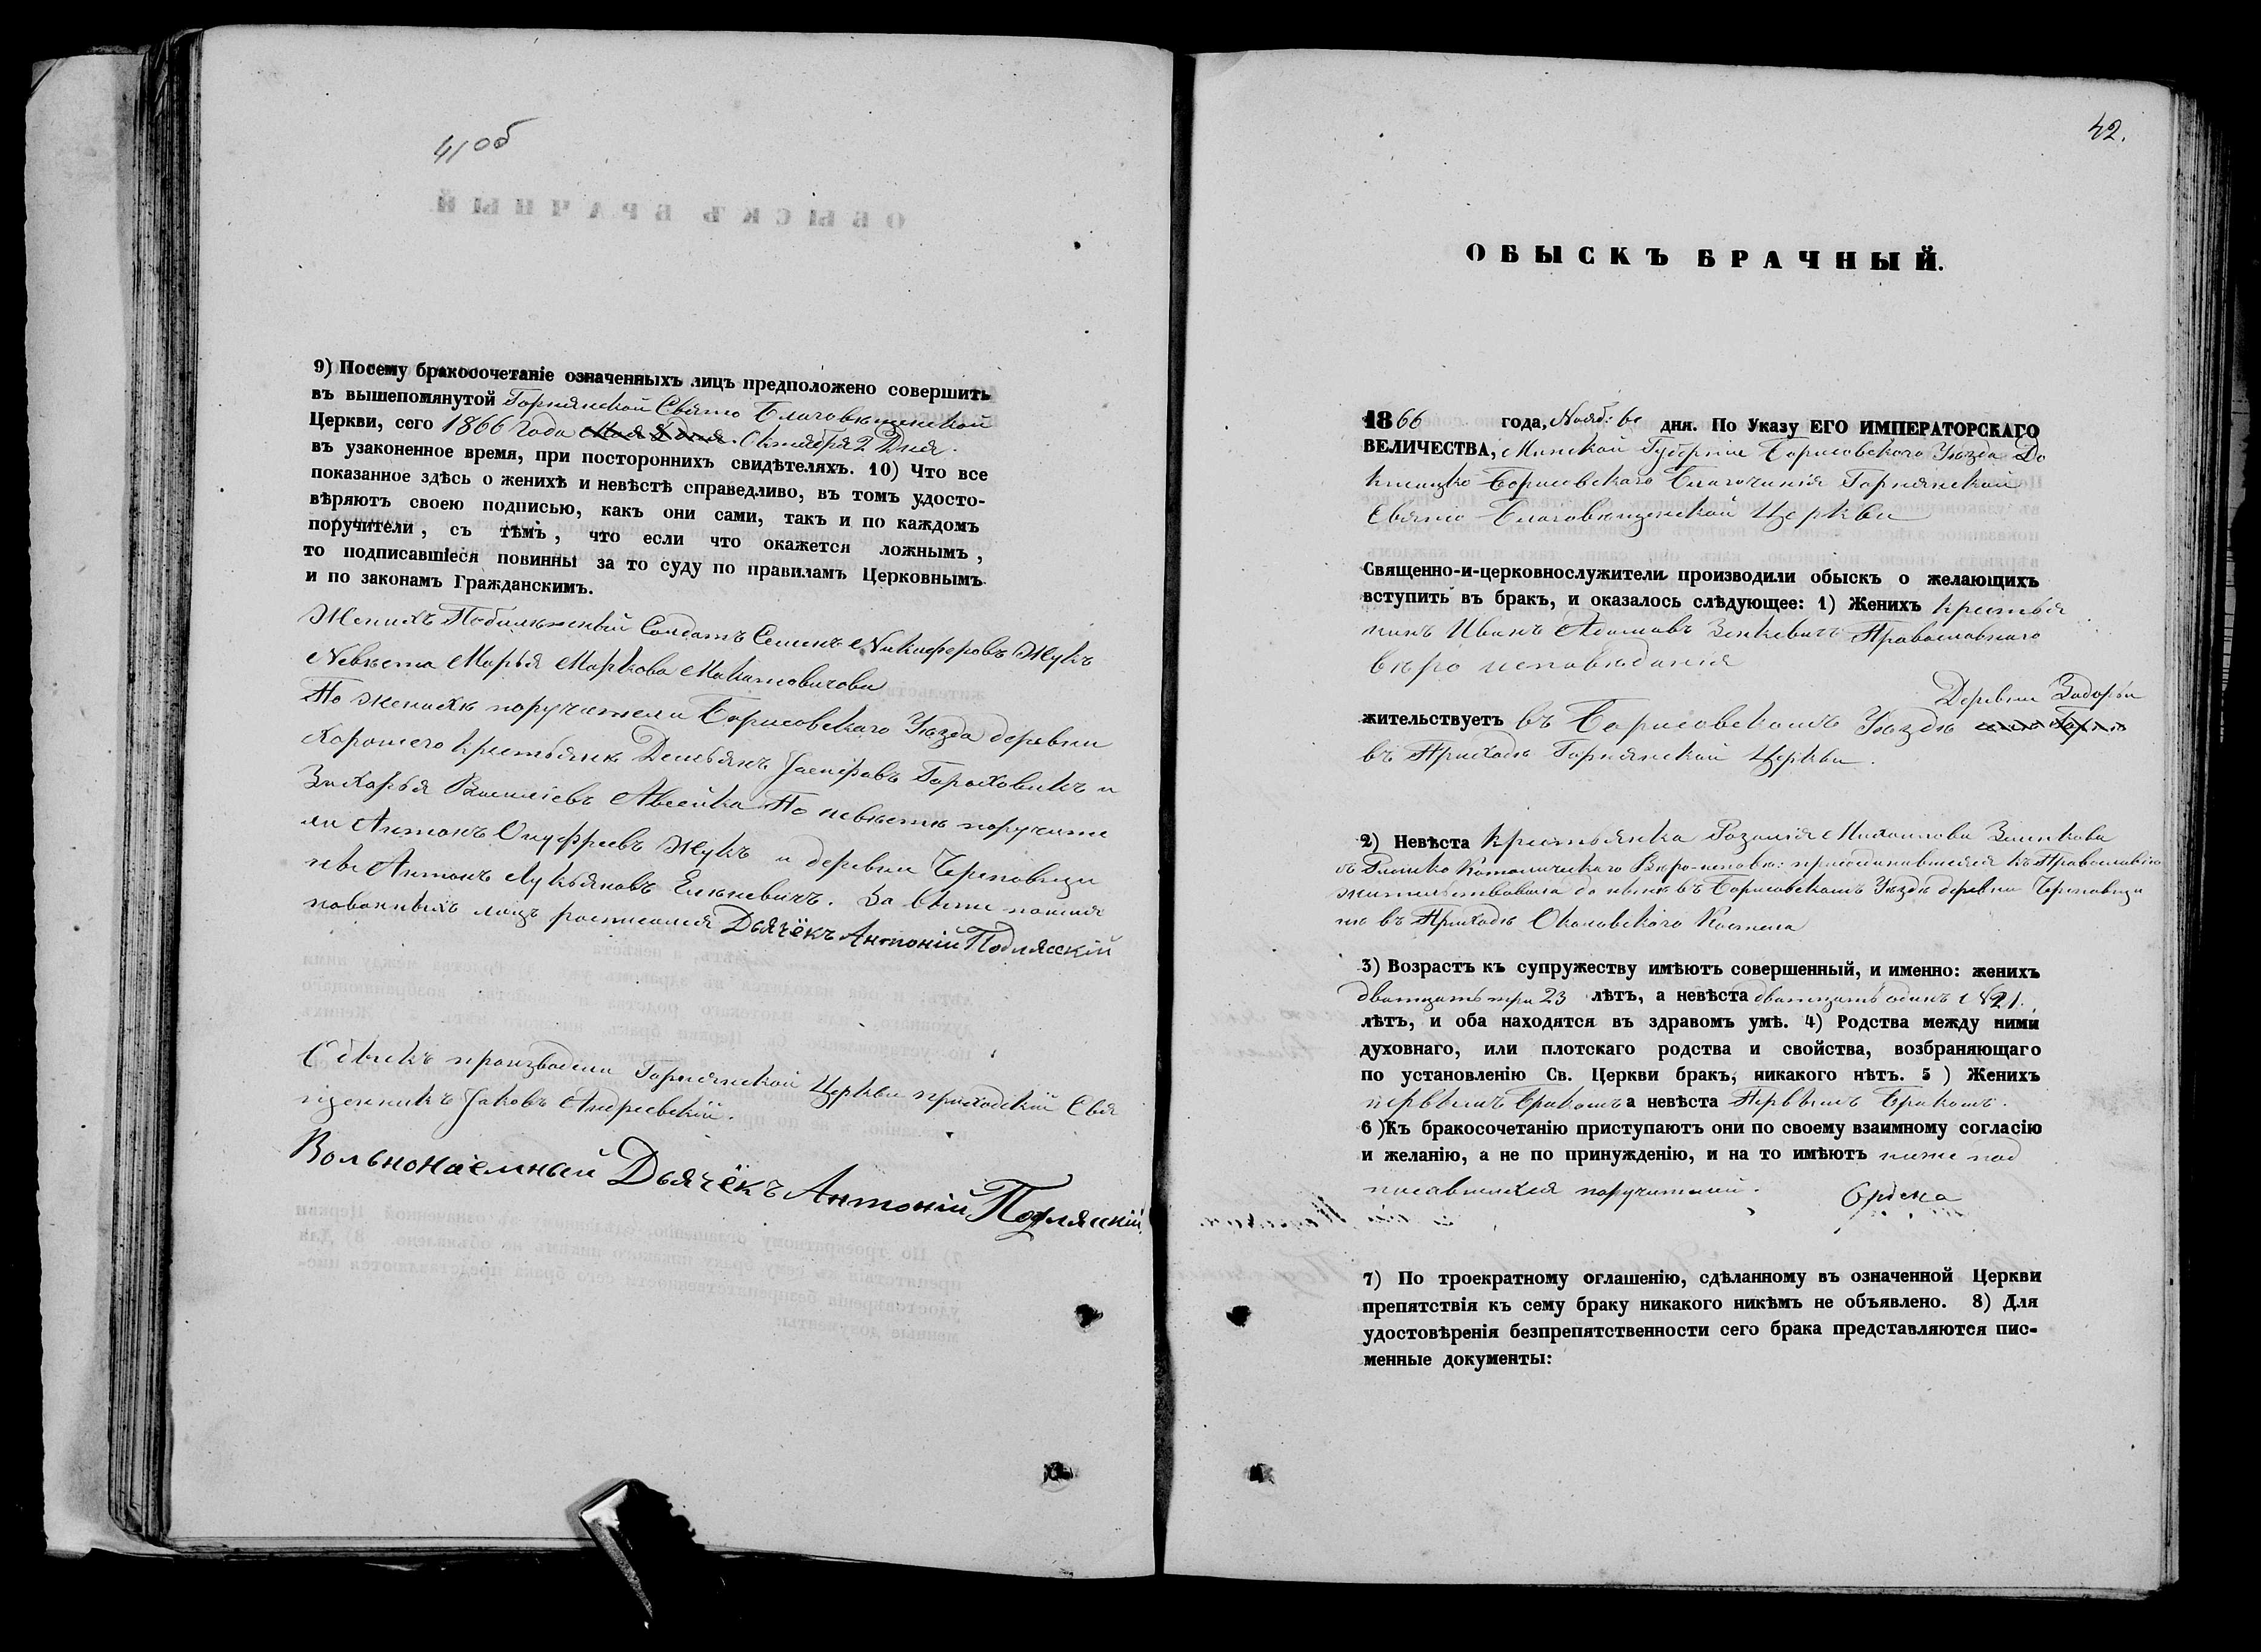 41об
9) Посему бракосочетаніе означенныхъ лицъ предположено совершить
въ вышепомянутой Горнянской Свято Благовѣщенской
Церкви, сего 1866 Года Мая 8 дня. Октября 2 Дня.
въ узаконенное время, при постороннихъ свидѣтеляхъ. 10) Что все
показанное здѣсь о женихѣ и невѣстѣ справедливо, въ томъ удосто-
вѣряютъ своею подписью, какъ они сами, такъ и по каждомъ
поручители, съ тѣмъ, что если что окажется ложнымъ,
то подписавшіеся повинны за то суду по правиламъ Церковнымъ
и по законамъ Гражданскимъ.
Женихъ Солдатъ Семенъ Никифоровъ Жукъ
Невѣста Марья Маркова
По женихѣ поручители Борисовскаго Уѣзда деревни
Хорошего Крестьянѣ Демьянъ Іосифовъ Гороховикъ и
Захарья Василіевъ Авсейка По невѣстѣ поручите
ли Антонъ Онуфріевъ Жукъ и деревни
Антонъ Лукьяновъ За выше
лицъ росписался Дьячёкъ Антоній Подлясскій
Обыскъ производили Горнянской Церкви приходскій Свя
щенникъ Іаковъ Андреевскій.
Вольнонаемный Дьячёкъ Антоній Подлясскій
42.
ОБЫСКЪ БРАЧНЫЙ.
1866 года, Нояб: 6 дня. По Указу ЕГО ИМПЕРАТОРСКАГО
ВЕЛИЧЕСТВА, Минской Губерніи Борисовского Уѣзда До
кшицко Борисовскаго Благочинія Горнянской
Свято Благовѣщенской Церкви
Священно-и-церковнослужители производили обыскъ о желающихъ
вступить въ бракъ, и оказалось слѣдующее: 1) Женихъ Крестья
нинъ Иванъ Адамовъ Зенкевичъ Православнаго
вѣро исповѣданія
Деревни Задорьи
жительствуетъ въ Борисовскомъ Уѣздѣ
въ Приходѣ Горнянской Церкви.
2) Невѣста Крестьянка Розалія Михайлова
Римско Католическаго Вѣроисповѣ: присоединившаяся къ Православію
жительствовала до нынѣ въ Борисовскомъ Уѣздѣ деревни
въ Приходѣ Околовского Костела
3) Возрастъ къ супружеству имѣютъ совершенный, и именно: женихъ
дватцать три 23 лѣтъ, а невѣста дватцать одинъ 21.
лѣтъ, и оба находятся въ здравомъ умѣ. 4) Родства между ними
духовнаго, или плотскаго родства и свойства, возбраняющаго
по установленію Св. Церкви бракъ, никакого нѣтъ. 5 ) Женихъ
первымъ Бракомъ а невѣста Первымъ Бракомъ.
6 )Къ бракосочетанію приступаютъ они по своему взаимному согласію
и желанію, а не по принужденію, и на то имѣютъ ниже под
писавшихся поручителей.
7) По троекратному оглашенію, сдѣланному въ означенной Церкви
препятствія къ сему браку никакого никѣмъ не объявлено. 8) Для
удостовѣренія безпрепятственности сего брака представляются пис-
менные документы: